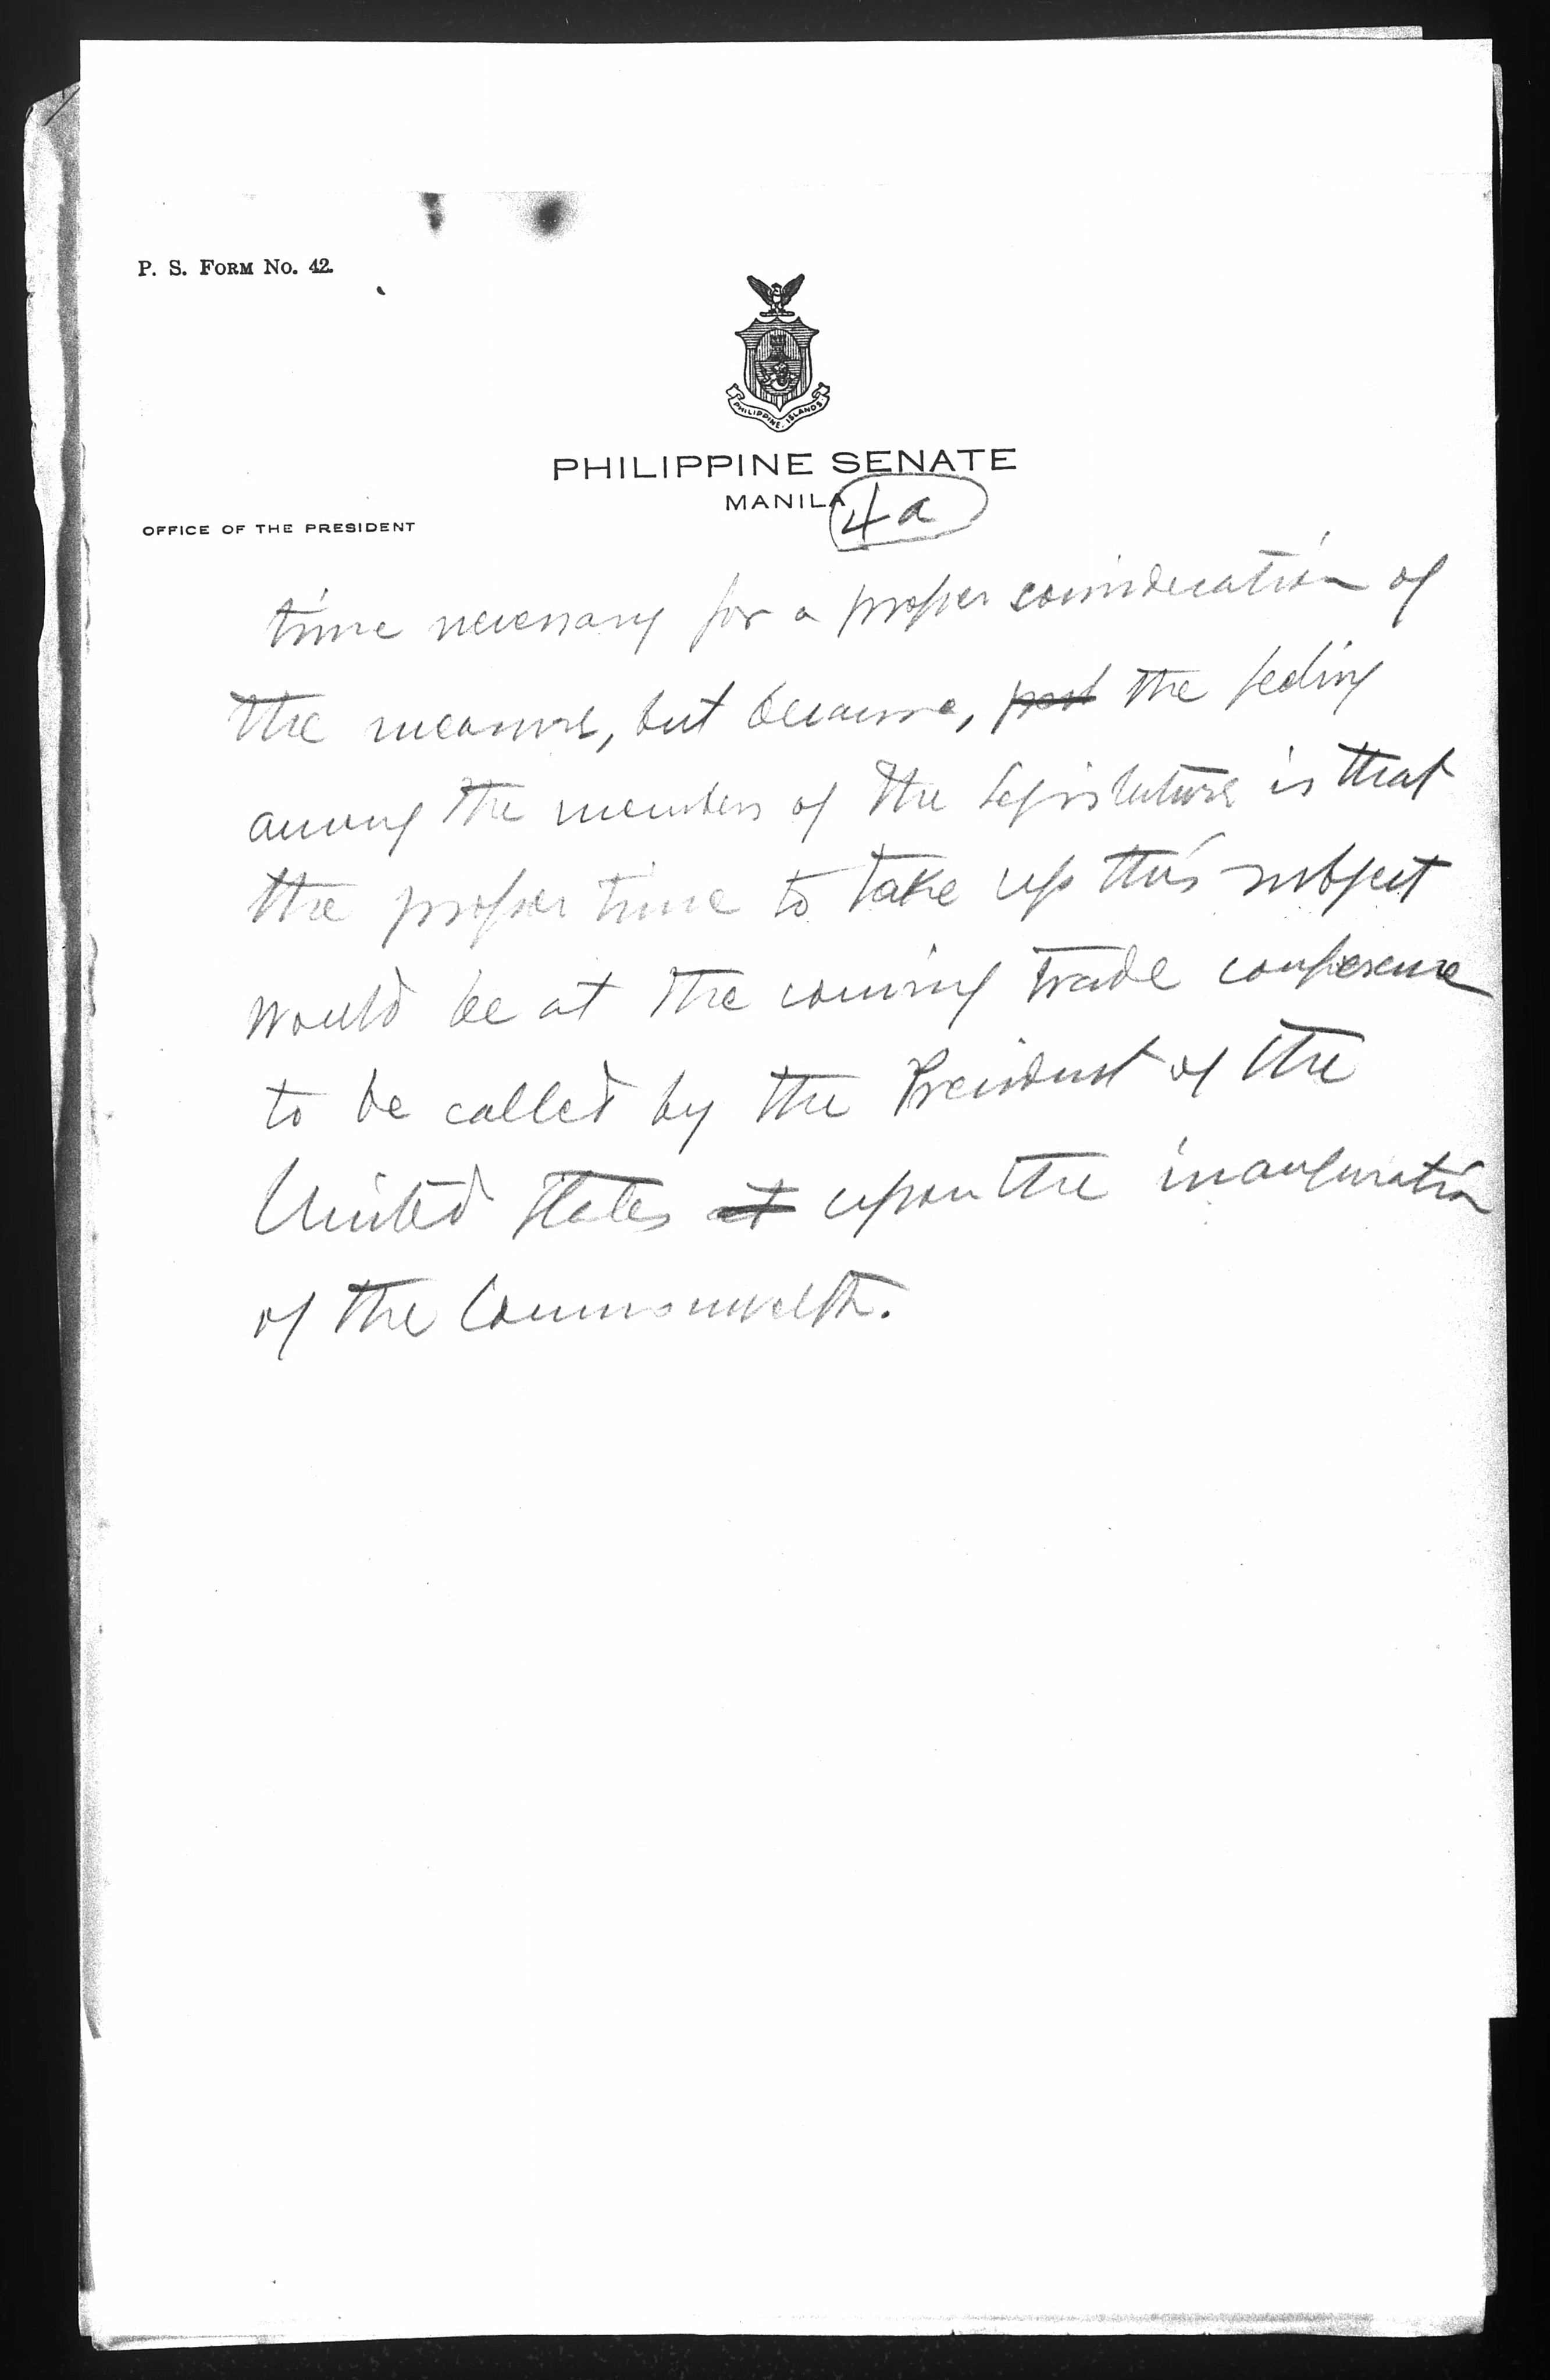 P. S. FORM NO. 42.
PHILIPPINE ISLANDS
PHILIPPINE SENATE
MANILA
4a
OFFICE OF THE PRESIDENT
time necessary for a proper consideration of
the measure, but because, the feeling
among the members of the Legislature is that
the proper time to take up this subject
would be at the coming trade conference
to be called by the President of the
United States at upon the inauguration
of the Commonwelth.